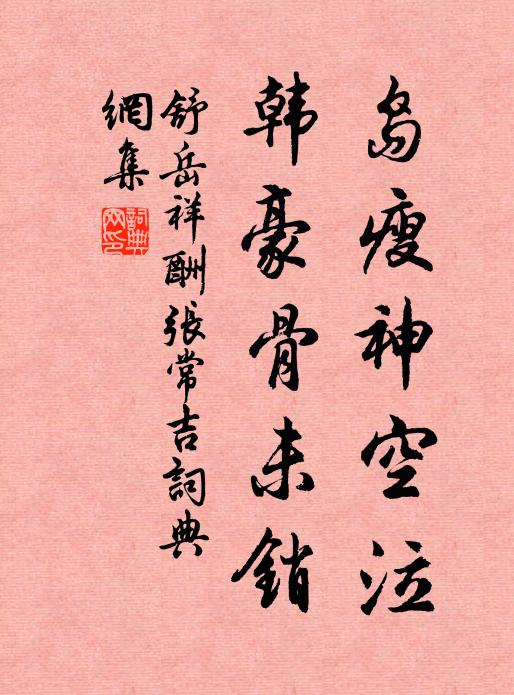 岛瘦神空泣
韩豪骨未销
舒岳祥酬張常吉詞典
網集
詞典網印